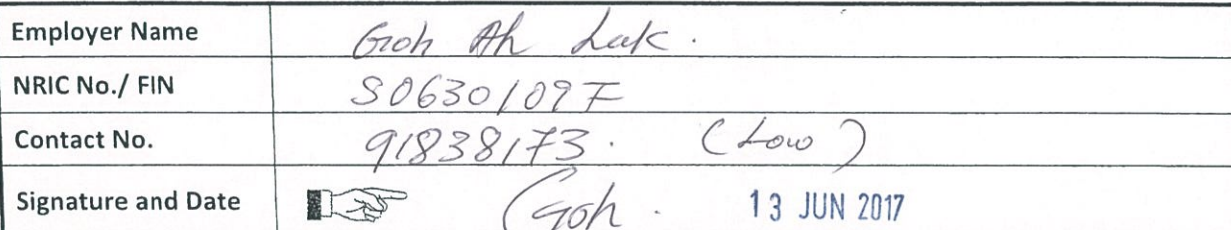 Employer Name Goh Ah Luk.
NRIC No./ FIN S0630109F
Contact No. 91838173. (Low)
Signature and Date Goh. 13 JUN 2017